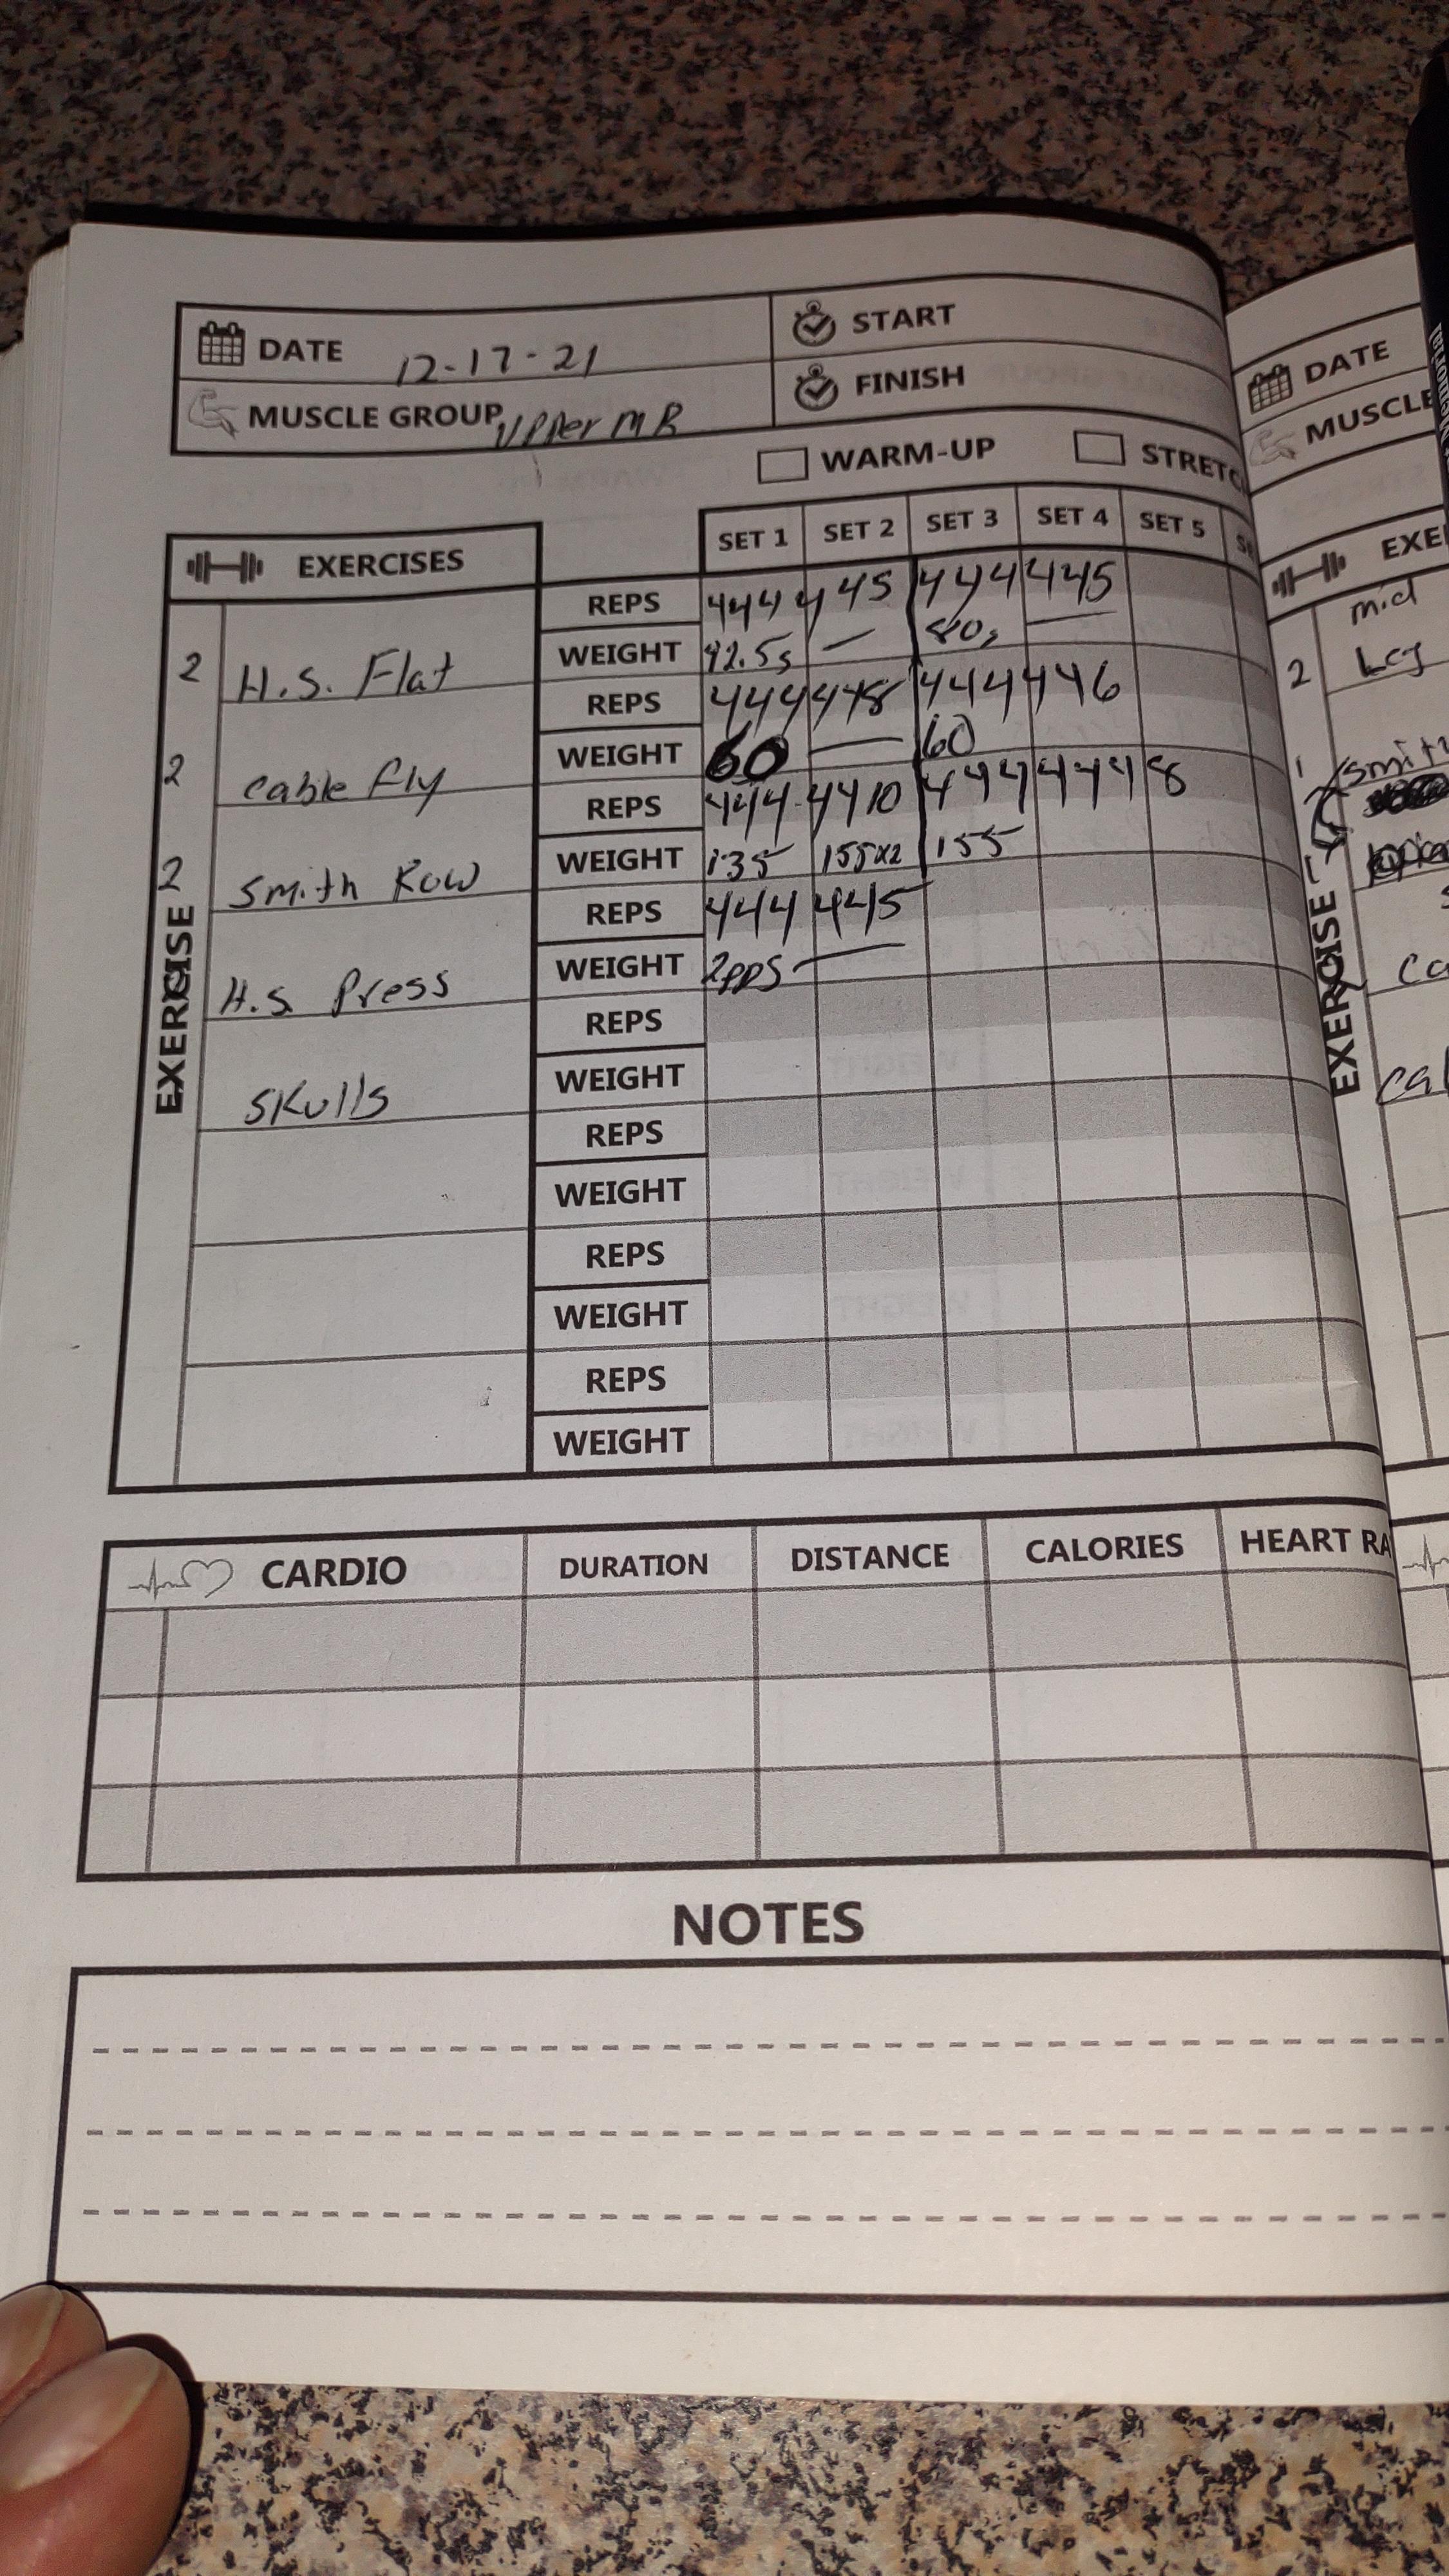 DATE 12-17-21
START
MUSCLE GROUP Upper MR
FINISH
WARM-UP STRETC
EXERCISES SET 1 SET 2 SET 3 SET 4 SET 5
REPS 444 445 444 445
2 H.S. Flat WEIGHT 92.5s — 80s —
REPS 444 448 444 446
2 cable fly WEIGHT 60 — 60
REPS 444 4410 444 444 8
2 Smith Row WEIGHT 135 155x2 155
REPS 444 445
H.S. Press WEIGHT 2pps —
REPS
Skulls WEIGHT
REPS
WEIGHT
REPS
WEIGHT
REPS
WEIGHT
EXERCISE
CARDIO DURATION DISTANCE CALORIES HEART RA
NOTES
DATE
MUSCLE
EXE
mid
2 Leg
1 Smith
EXERCISE
ca
cal